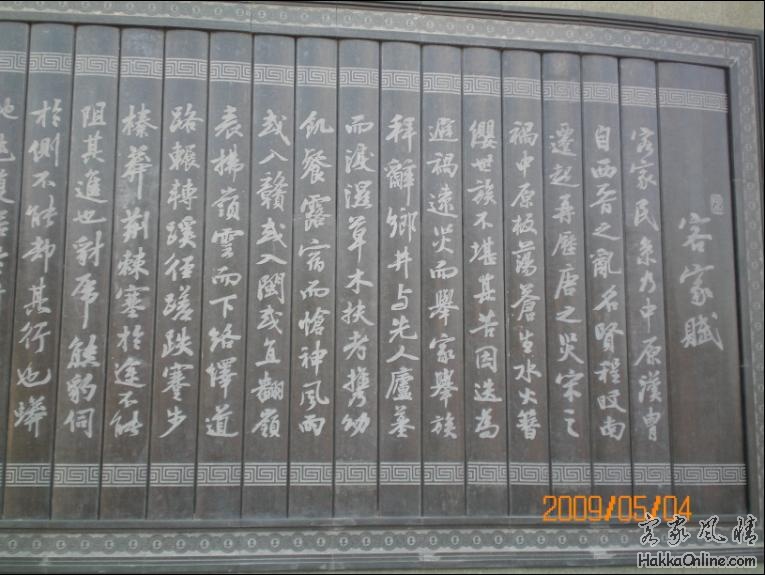 客家賦
客家民系乃中原漢胄
自西晋之亂名賢程旼南
遷起再歷唐之災宋之
禍中原板蕩蒼生水火簪
纓世族不堪其苦因迭為
避禍遠災而舉家舉族
拜辭鄉井与先人廬墓
而渡濕草木扶老携幼
飢餐露宿而愴神風雨
或入贛或入閩或直翻嶺
表拂嶺雲而下絡繹道
路輾轉蹊徑蹉跌蹇步
榛莽荆棘塞於途不能
阻其進也豺虎熊豹伺
於側不能却其行也蟒
2009/05/04
客家風情
HakkaOnline.com